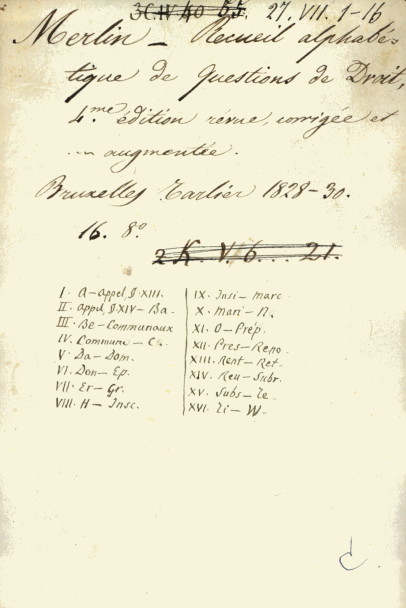 3 C. IV 40 55. 27. VII. 1-16
Merlin — Recueil alphabé-
tique de Questions de Droit,
4.me édition revue, corrigée et
... augmentée.
Bruxelles Tarlier 1828-30.
16. 8°
2 K. V. 6... 21.
I. A — Appel, § XIII.
II. Appel, § XIV — Ba.
III. Be — Communaux
IV. Commune — Cu.
V. Da — Dom.
VI. Don — Ep.
VII. Er — Gr.
VIII. H — Insc.
IX. Insi — Marc
X. Mari — N.
XI. O — Prép.
XII. Pres — Reno
XIII. Rent — Ret.
XIV. Reu — Subr.
XV. Subs — Te.
XVI. Ti — W.